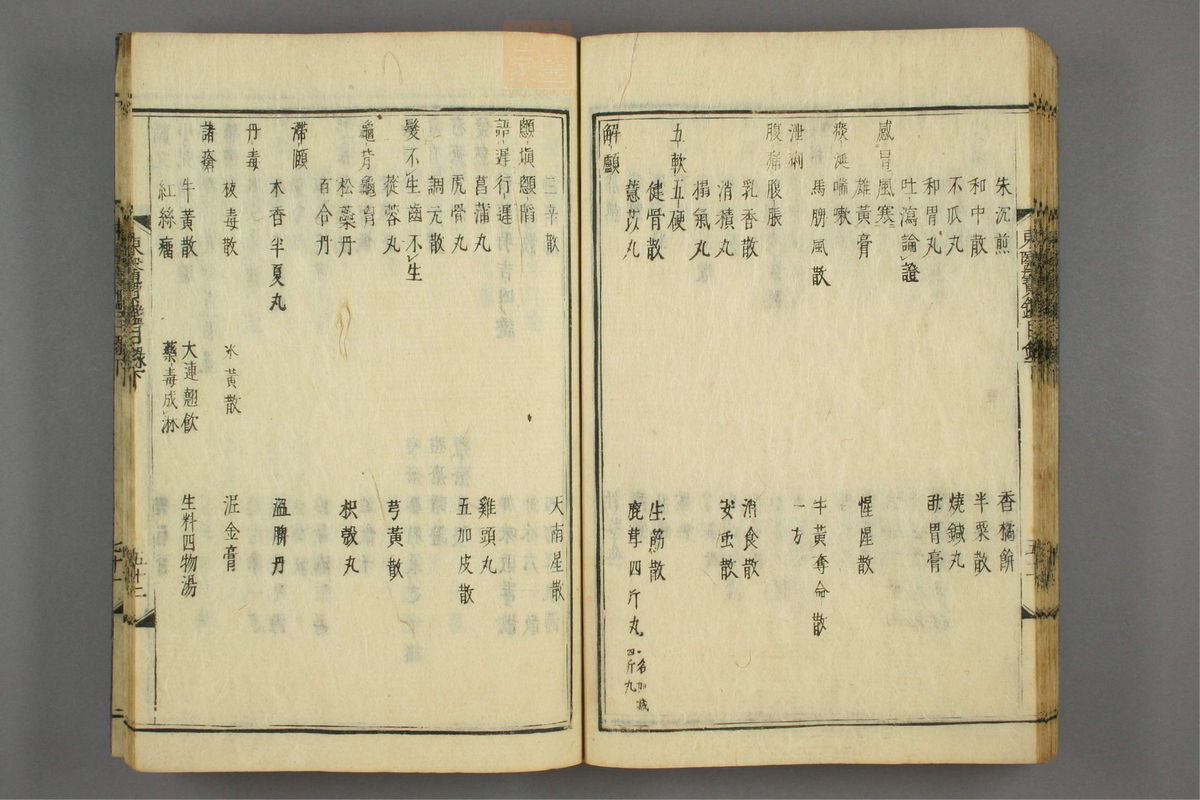 朱沉煎 香橘餅
和中散 半粟散
木瓜丸 燒鍼丸
和胃丸 助胃膏
吐瀉論證
感冒風寒 惺惺散
雄黃膏
痰涎喘嗽 牛黃奪命散
馬脾風散 一方
泄痢
腹痛腹脹
乳香散 消食散
消積丸 安蟲散
搨氣丸
五軟五硬
健骨散 生筋散
薏苡丸 鹿茸四斤丸 一名加減四斤丸
解顱
三辛散 天南星散
顖塡顖陷
語遲行遲
菖蒲丸 雞頭丸
虎骨丸 五加皮散
調元散
髮不生齒不生
蓯蓉丸 芎黃散
龜背龜胷
松蘂丹 枳殼丸
百合丹
滯頤
木香半夏丸 溫脾丹
丹毒
拔毒散 氷黃散 泥金膏
諸瘡
牛黃散 大連翹飮 生料四物湯
紅絲瘤 藥毒成淋
東醫寶鑑目錄下
五十二